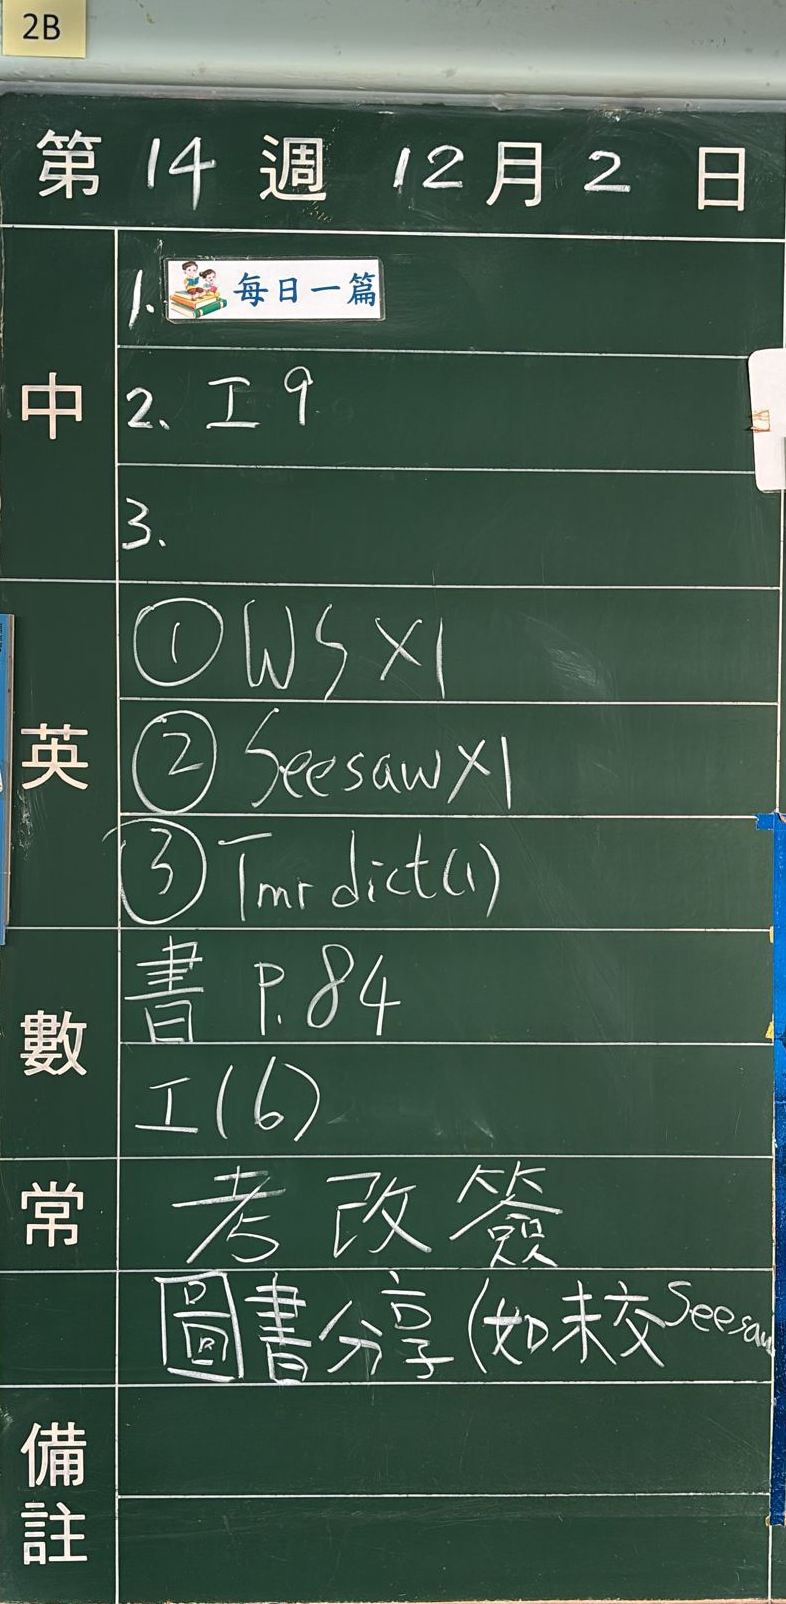 2B
第 14 週 12 月 2 日
中
1. 每日一篇
2. 工 9
3.
英
① WS X1
② Seesaw X1
③ Tmr dict(1)
數
書 P.84
工(6)
常
考 改 簽
圖書分享(如未交 Seesaw
備註